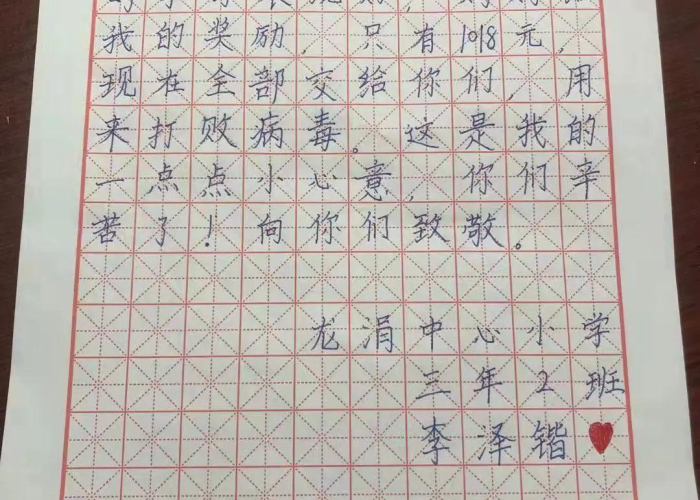 我的奖励，只有1018元，
现在全部交给你们，用
来打败病毒。这是我的
一点点小心意，你们辛
苦了！向你们致敬。
龙涓中心小学
三年2班
李泽锴